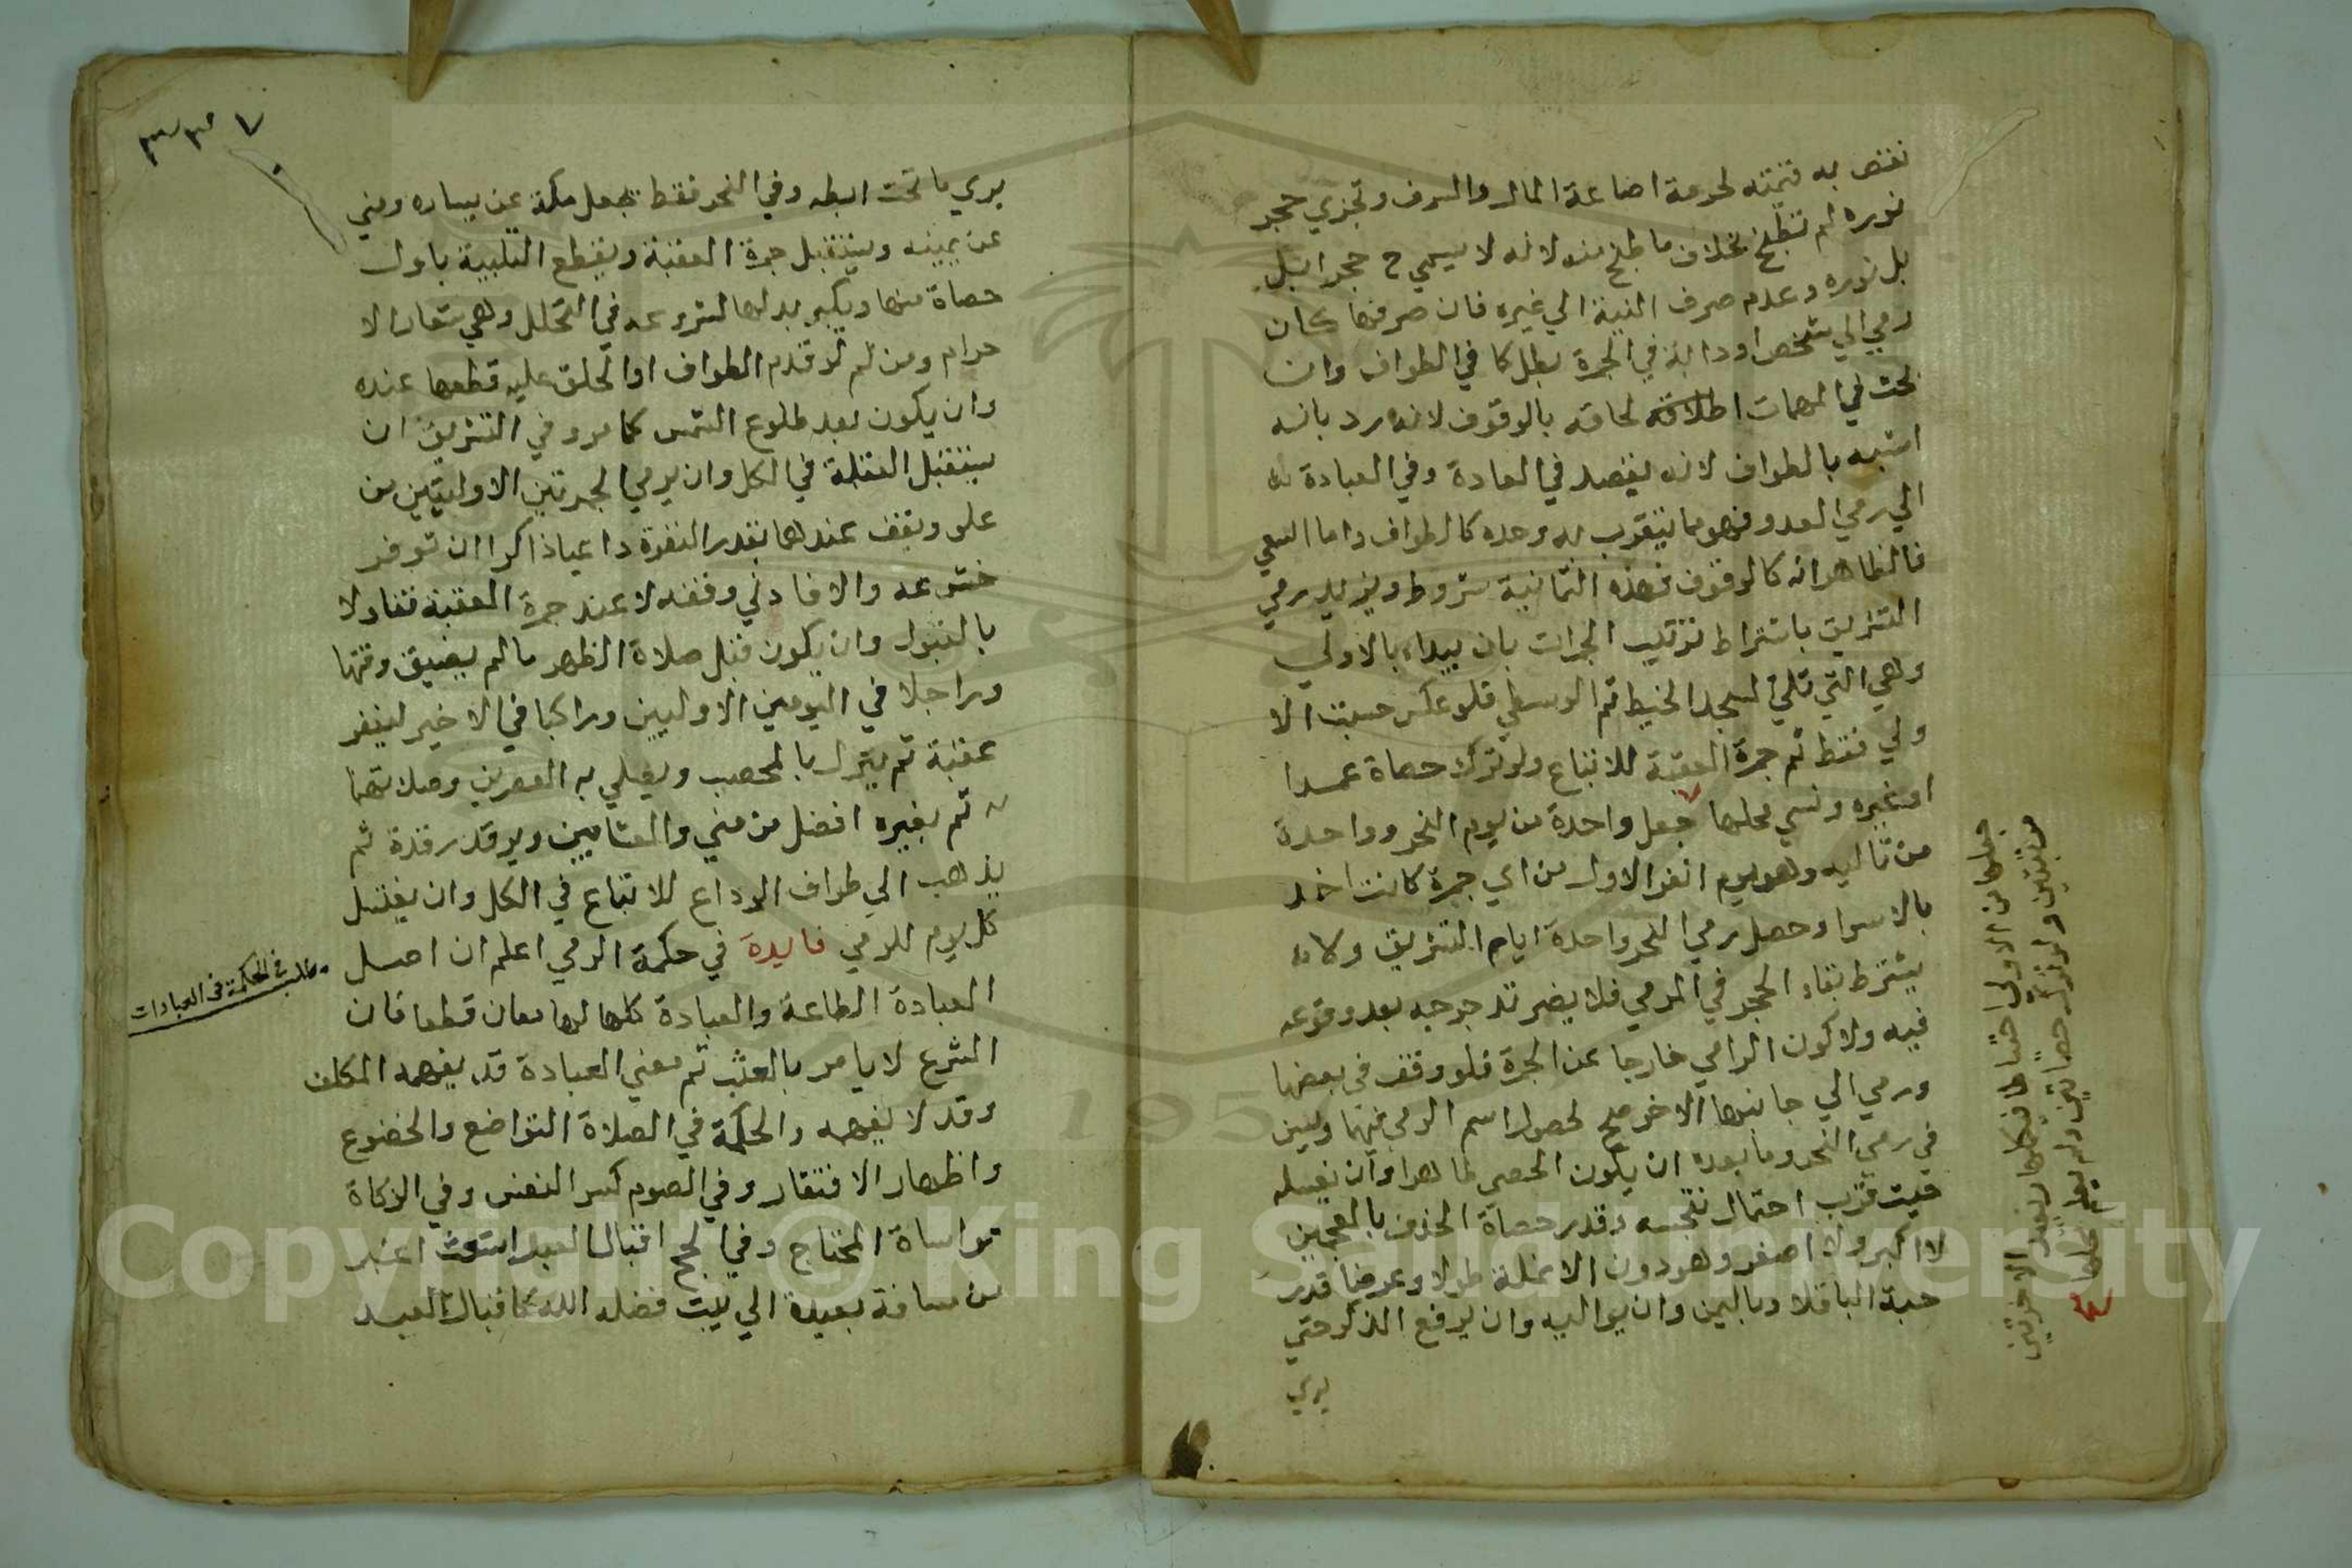 نقص به قيمته لحرمة اضاعة المال والسرف وتجزي حجر
نوره لم تطبخ بخلاف ما طبخ منه لانه لا يسمي ح حجرا بل
بل نوره وعدم صرف النية الي غيره فان صرفها كان
رمي الي شخص او دابة في الجمرة بطل كما في الطواف وان
بحث في المهمات الحاقه بالوقوف لانه رد بانه
اشبه بالطواف لانه يقصد في العادة وفي العبادة
الي رمي العدو فهو مما يتقرب به وحده كالطواف واما السعي
فالظاهر انه كالوقوف فهذه الثمانية شروط ويزيد رمي
التشريق باشتراط ترتيب الجمرات بان يبداء بالاولي
وهي التي تلي مسجد الخيط ثم الوسطي فلو عكس حسبت الا
ولي فقط ثم جمرة العقبة للاتباع ولو ترك حصاة عمدا
او غيره ونسي محلها جعل واحدة من يوم النحر وواحدة
من تاليه وهو يوم النفر الاول من اي جمرة كانت اخذ
بالاسوا وحصل رمي النحر واحدة ايام التشريق ولا
يشترط بقاء الحجر في المرمي فلا يضر تدحرجه بعد وقوعه
فيه ولا كون الرامي خارجا عن الجمرة فلو وقف في بعضها
ورمي الي جانبها الاخر صح لحصول اسم الرمي فيهما ويسن
في رمي النحر وما بعده ان يكون الحصي طاهرا وان يغسله
حيث قرب احتمال تنجسه وقدر حصاة الخذف بالمعجمين
لا اكبر ولا اصغر وهو دون الانملة طولا وعرضا قدر
حبة الباقلا وباليمين وان يواليه وان يرفع الذكر حتي
يري
جعلها من الاولي احتياطا فيكملها ثم يعيد الاخرتين
مرتبتين ولو ترك حصاتين ولم يعلم محلهما
٣٣٧
يري ما تحت ابطه وفي النحر فقط يجعل مكة عن يساره ومني
عن يمينه ويستقبل جمرة العقبة ويقطع التلبية باول
حصاة منها ويكبر بدلها لشروعه في التحلل وهي شعار الا
حرام ومن ثم لو قدم الطواف او الحلق عليه قطعها عنده
وان يكون بعد طلوع الشمس كما مر وفي التشريق ان
يستقبل القبلة في الكل وان يرمي الجمرتين الاوليتين من
علو ويقف عندهما بقدر البقرة داعيا ذاكرا ان توفر
خشوعه والا فادني وقفه لا عند جمرة العقبة تفاولا
بالقبول وان يكون قبل صلاة الظهر ما لم يضيق وقتها
وراجلا في اليومين الاوليين وراكبا في الاخير لينفر
عقبة ثم ينزل بالمحصب ويصلي به العصرين وصلاتهما
به ثم بغيره افضل من مني والعشايين ويرقد رقدة ثم
يذهب الي طواف الوداع للاتباع في الكل وان يغتسل
كل يوم للرمي فايدة في حكمة الرمي اعلم ان اصل
العبادة الطاعة والعبادة كلها لها معان قطعا فان
الشرع لا يامر بالعبث ثم معني العبادة قد يفهمه المكلف
وقد لا يفهمه والحكمة في الصلاة التواضع والخضوع
واظهار الافتقار وفي الصوم كسر النفس وفي الزكاة
مواساة المحتاج وفي الحج اقبال العبد اشعث اغبر
من مسافة بعيدة الي بيت فضله الله كاقبال العبد
مطلب في الحكمة في العبادات